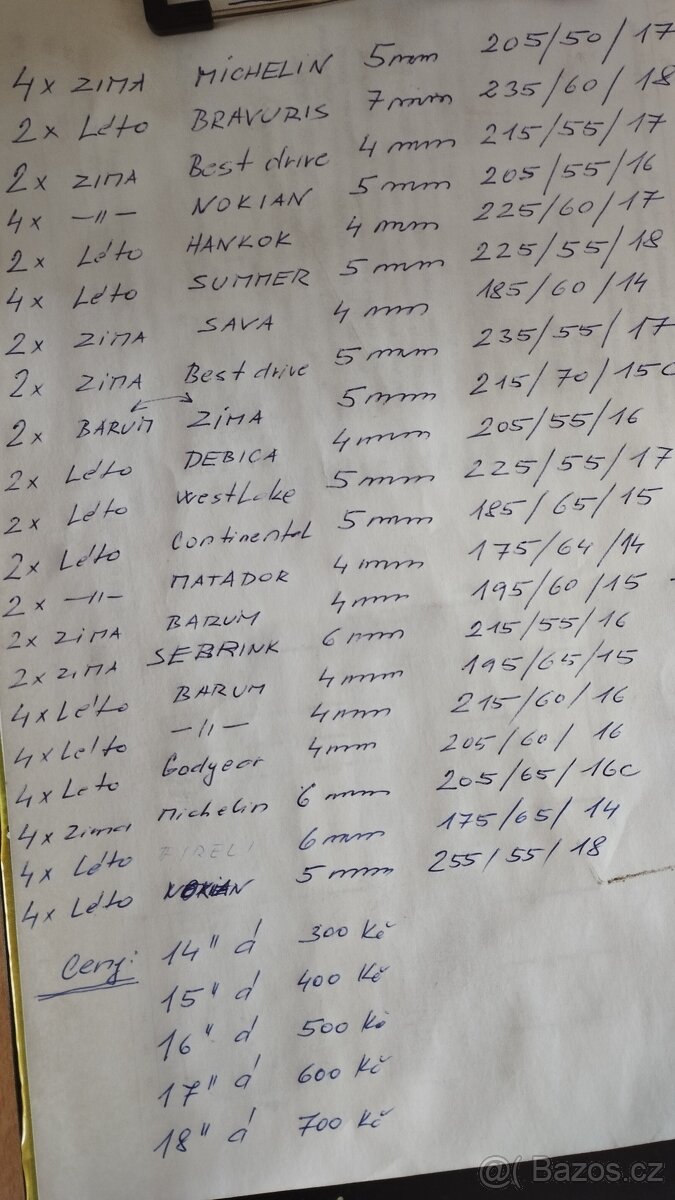 4x ZIMA MICHELIN 5mm 205/50/17
2x Léto BRAVURIS 7mm 235/60/18
2x ZIMA Best drive 4mm 215/55/17
4x -11- NOKIAN 5mm 205/55/16
2x Léto HANKOK 4mm 225/60/17
4x Léto SUMMER 5mm 225/55/18
2x ZIMA SAVA 4mm 185/60/14
2x ZIMA Best drive 5mm 235/55/17
2x BARUM ZIMA 5mm 215/70/15C
2x Léto DEBICA 4mm 205/55/16
2x Léto WestLake 5mm 225/55/17
2x Léto Continental 5mm 185/65/15
2x -11- MATADOR 4mm 175/64/14
2x ZIMA BARUM 4mm 195/60/15
2x ZIMA SEBRINK 6mm 215/55/16
4x Léto BARUM 4mm 195/65/15
4x Léto -11- 4mm 215/60/16
4x Leto Godyear 4mm 205/60/16
4x Zima Michelin 6mm 205/65/16C
4x Léto PIRELI 6mm 175/65/14
4x Léto NOKIAN 5mm 255/55/18
Ceny: 14" á 300 Kč
15" á 400 Kč
16" á 500 Kč
17" á 600 Kč
18" á 700 Kč
@( Bazos.cz